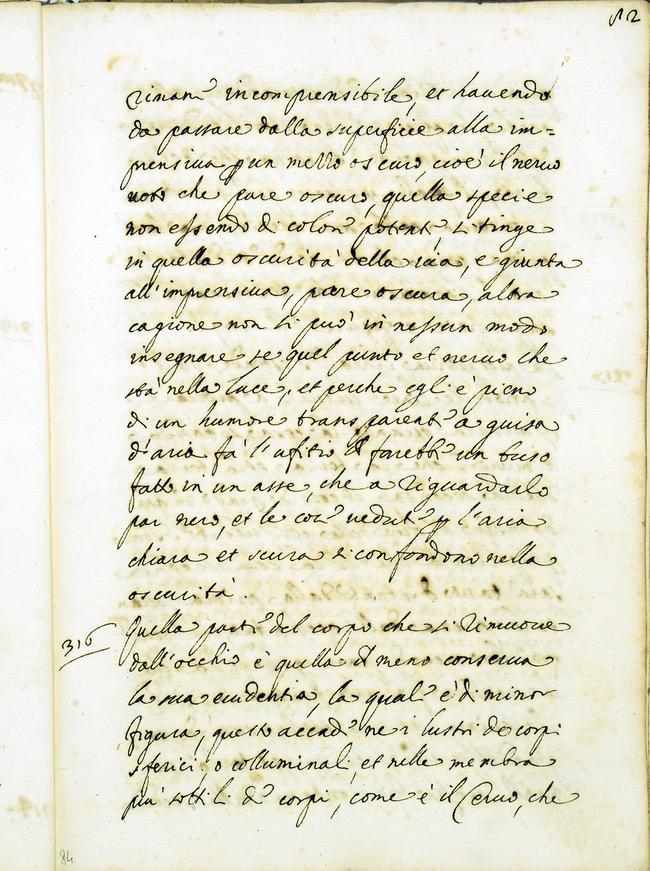 82
riman.e incomprensibile, et havendo
da passare dalla superficie alla im=
prensiva p un mezzo oscuro, cioè il nervo
voto che pare oscuro, quella specie
non essendo di color.e potent.e si tinge
in quella oscurità della via, e giunta
all'imprensiva, pare oscura, altra
cagione non si può in nessun modo
insegnare se quel punto et nervo che
sta nella luce, et perche egl'è pieno
di un humore transparent.e a guisa
d'aria fà l'ufitio farebb.e un buso
fatto in un asse, che a riguardarlo
par nero, et le cos.e vedut.e p l'aria
chiara et scura si confondono nella
oscurità.
316 Quella part.e del corpo che si rimuove
dall'occhio è quella meno conserva
la sua evidentia, la qual.e è di minor
figura, questo accad.e ne i lustri de corpi
sferici, o colluminali, et nelle membra
più sottili d.e corpi, come è il Cervo, che
84